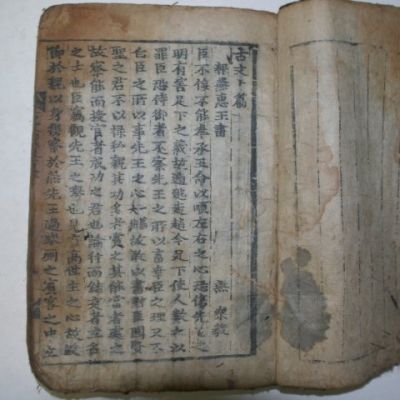 古文卜篇
報燕惠王書 燕 樂毅
臣不佞不能奉承王命以順左右之心恐傷先王之
明有害足下之義故遁逃走趙今足下使人數之以
罪臣恐侍御者不察先王之所以畜幸臣之理又不
白臣之所以事先王之心故敢以書對臣聞賢
聖之君不以祿私親其功多者賞之其能當者處之
故察能而授官者成功之君也論行而結交者立名
之士也臣竊觀先王之舉也見有高世主之心故假
節於魏以身得察於燕先王過舉厠之賓客之中立